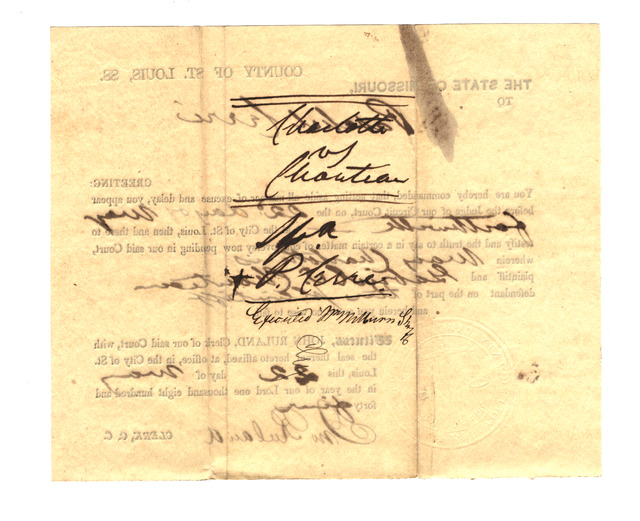 Charlotte
vs
Chouteau
Spa
+ P. Ferre
Executed Wm Milburn Shff
COUNTY OF ST. LOUIS, SS.
THE STATE OF MISSOURI,
TO
GREETING:
You are hereby commanded, that setting aside all manner of excuse and delay, you appear
before the Judge of our Circuit Court, on the 22d day of May
forthwith the City of St. Louis, then and there to
testify and the truth to say in a certain matter of controversy now pending in our said Court,
wherein Negro Charlotte
plaintiff and Gabriel Chouteau
defendant on the part of
and
Witness, JOHN RULAND, Clerk of our said Court, with
the seal thereof hereto affixed, at office, in the City of St.
Louis, this 22 day of May
in the year of our Lord one thousand eight hundred and
forty four
Jno Ruland
CLERK, C. C.